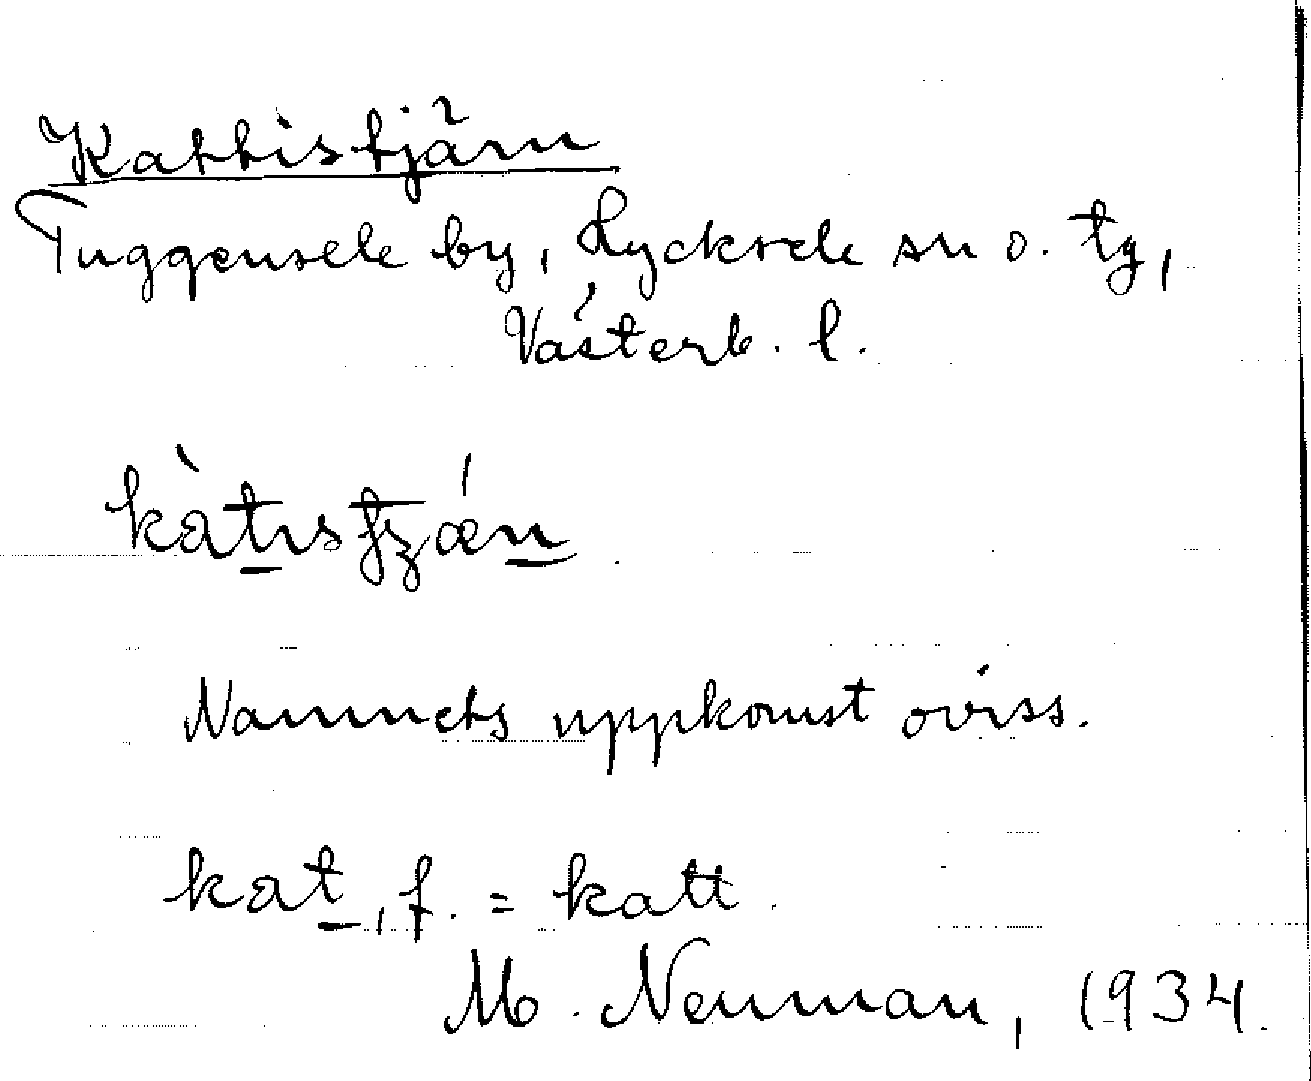 Kattistjärn
Tuggensele by, Lycksele sn o. tg,
Västerb. l.
Namnets uppkomst oviss.
kat, f. = katt.
M. Neuman, 1934.